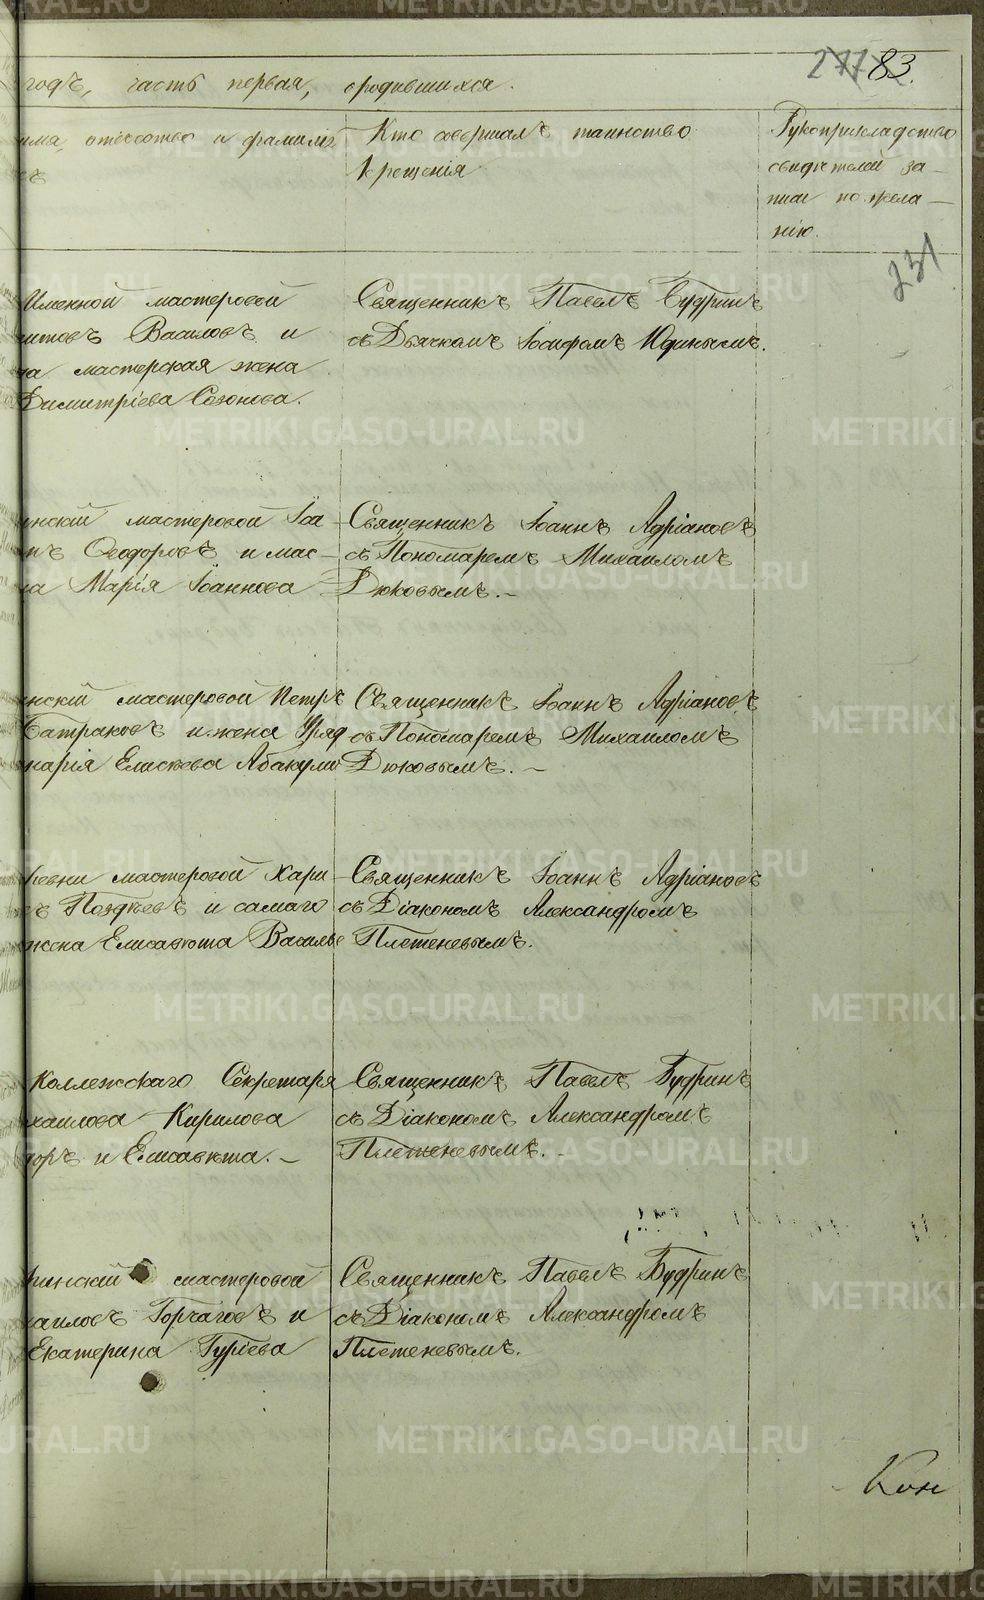 277 83.
годъ, часть первая, о родившихся.
имя, отчество и фамилія
Кто совершалъ таинство
крещенія
Рукоприкладство
свидѣтелей за-
писи по жела-
нію.
231
Именной мастеровой
Василовъ и
мастерская жена
Димитріева Созонова.
Священникъ Павелъ Будринъ
съ Дьячкомъ Іосифомъ Юдинымъ.
нскій мастеровой Іоа-
нъ Ѳеодоровъ и мас-
на Марія Іоаннова
Священникъ Іоаннъ Адріановъ
съ Пономаремъ Михаиломъ
Дюковымъ.-
нскій мастеровой Петръ
Батраковъ и жена Уряд
марія Елисѣева Абакумо
Священникъ Іоаннъ Адріановъ
съ Пономаремъ Михаиломъ
Дюковымъ.-
ревни мастеровой Хари-
въ Поздѣевъ и самаго
жена Елисавета Василье
Священникъ Іоаннъ Адріановъ
съ Діакономъ Александромъ
Плетеневымъ.
Коллежскаго Секретаря
хаилова Кирилова
доръ и Елисавета.-
Священникъ Павелъ Будринъ
съ Діакономъ Александромъ
Плетеневымъ.-
нскій мастеровой
хаиловъ Горчаговъ и
Екатерина Гуріева
Священникъ Павелъ Будринъ
съ Діакономъ Александромъ
Плетеневымъ.
Кон
METRIKI.GASO-URAL.RU